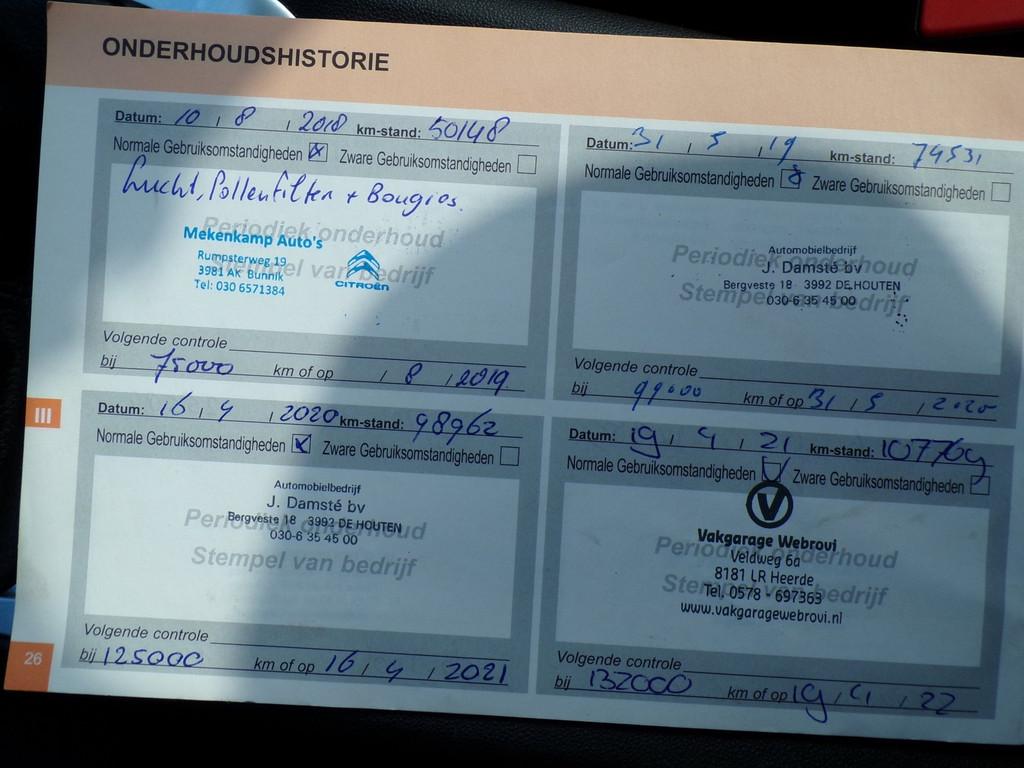 ONDERHOUDSHISTORIE
Datum: 10 / 8 / 2018 km-stand: 50148
Normale Gebruiksomstandigheden Zware Gebruiksomstandigheden
Lucht, Pollenfilter + Bougies.
Periodiek onderhoud
Stempel van bedrijf
Mekenkamp Auto's
Rumpsterweg 19
3981 AK Bunnik
Tel: 030 6571384
CITROËN
Volgende controle
bij 75000 km of op / 8 / 2019
Datum: 31 / 5 / 19 km-stand: 74531
Normale Gebruiksomstandigheden Zware Gebruiksomstandigheden
Periodiek onderhoud
Stempel van bedrijf
Automobielbedrijf
J. Damsté bv
Bergveste 18 3992 DE HOUTEN
030-6 35 45 00
Volgende controle
bij 99000 km of op 31 / 5 / 2020
III
Datum: 16 / 4 / 2020 km-stand: 98962
Normale Gebruiksomstandigheden Zware Gebruiksomstandigheden
Periodiek onderhoud
Stempel van bedrijf
Automobielbedrijf
J. Damsté bv
Bergveste 18 3992 DE HOUTEN
030-6 35 45 00
Volgende controle
bij 125000 km of op 16 / 4 / 2021
Datum: 19 / 4 / 21 km-stand: 107769
Normale Gebruiksomstandigheden Zware Gebruiksomstandigheden
Periodiek onderhoud
Stempel van bedrijf
V
Vakgarage Webrovi
Veldweg 6a
8181 LR Heerde
Tel. 0578 - 697363
www.vakgaragewebrovi.nl
Volgende controle
bij 132000 km of op 19 / 4 / 22
26